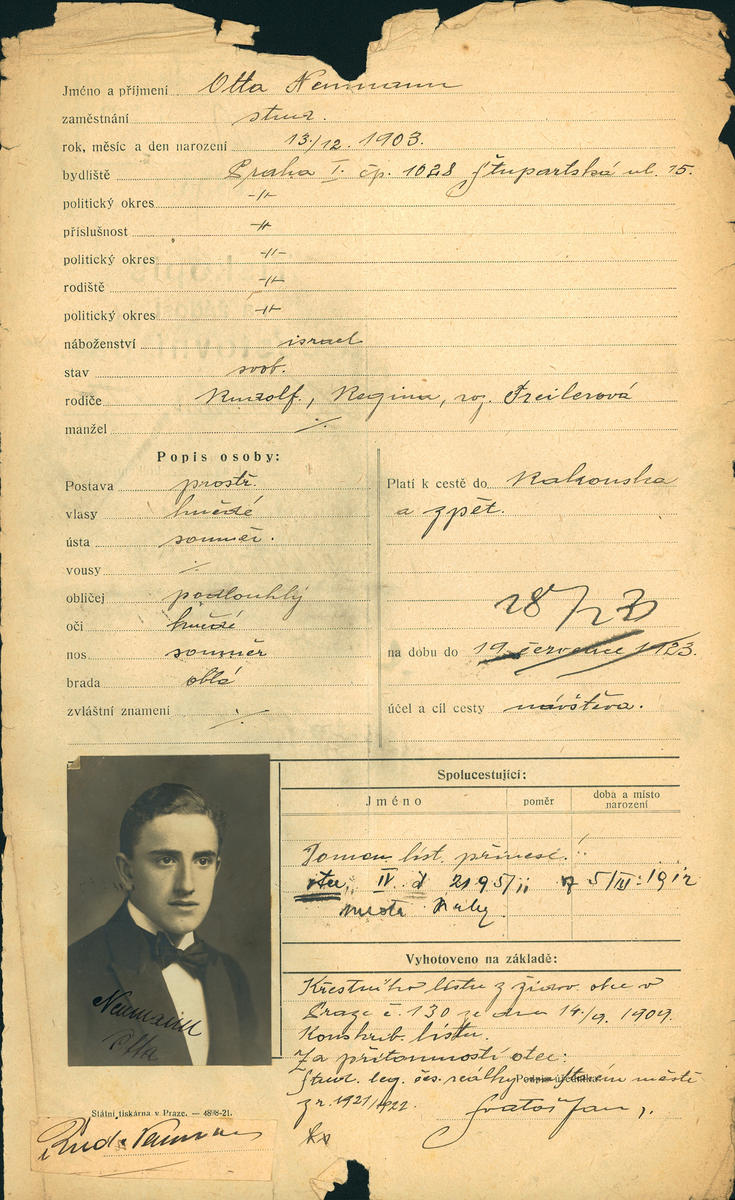 Jméno a příjmení Otta Neumann
zaměstnání stud.
rok, měsíc a den narození 13./12. 1903.
bydliště Praha I. čp. 1028 Štupartská ul. 15.
politický okres -"-
příslušnost -"-
politický okres -"-
rodiště -"-
politický okres -"-
náboženství israel
stav svob.
rodiče Rudolf., Regina, roz. Freilerová
manžel ·/·
Popis osoby:
Postava prostř.
vlasy hnědé
ústa souměr.
vousy ·/·
obličej podlouhlý
oči hnědé
nos souměr
brada oblá
zvláštní znamení ·/·
Platí k cestě do Rakouska
a zpět.
28/7 23
na dobu do 19 července 1923.
účel a cíl cesty návštěva.
Spolucestující:
Jméno
poměr
doba a místo
narození
Domov. list přinesl.
otec, IV. 2195/11 5/IV. 1912
města Prahy
Vyhotoveno na základě:
Křestního listu z židov. obce v
Praze č. 130 ze dne 14./9. 1909.
Konskrib. listu.
Za přítomnosti otce:
Stud. leg. čes. reálky Starém městě
Podpis úředníka:
z r. 1921/1922.
Neumann
Otta
Státní tiskárna v Praze. — 4898-21.
Rud. Neumann